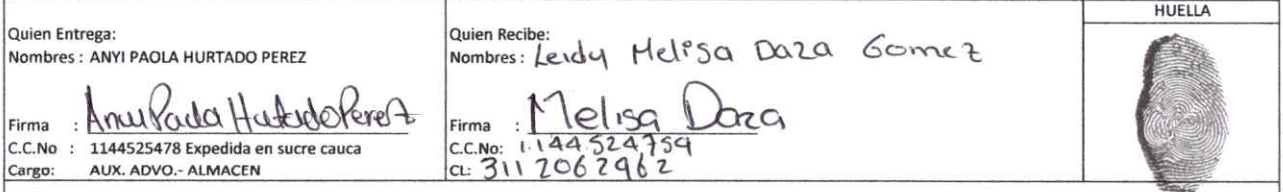 HUELLA
Quien Entrega:
Nombres : ANYI PAOLA HURTADO PEREZ
Firma : Anyi Paola Hurtado Perez
C.C.No : 1144525478 Expedida en sucre cauca
Cargo: AUX. ADVO.- ALMACEN
Quien Recibe:
Nombres : Leidy Melisa Daza Gomez
Firma : Melisa Daza
C.C.No: 1.144.524759
CL: 3112062962